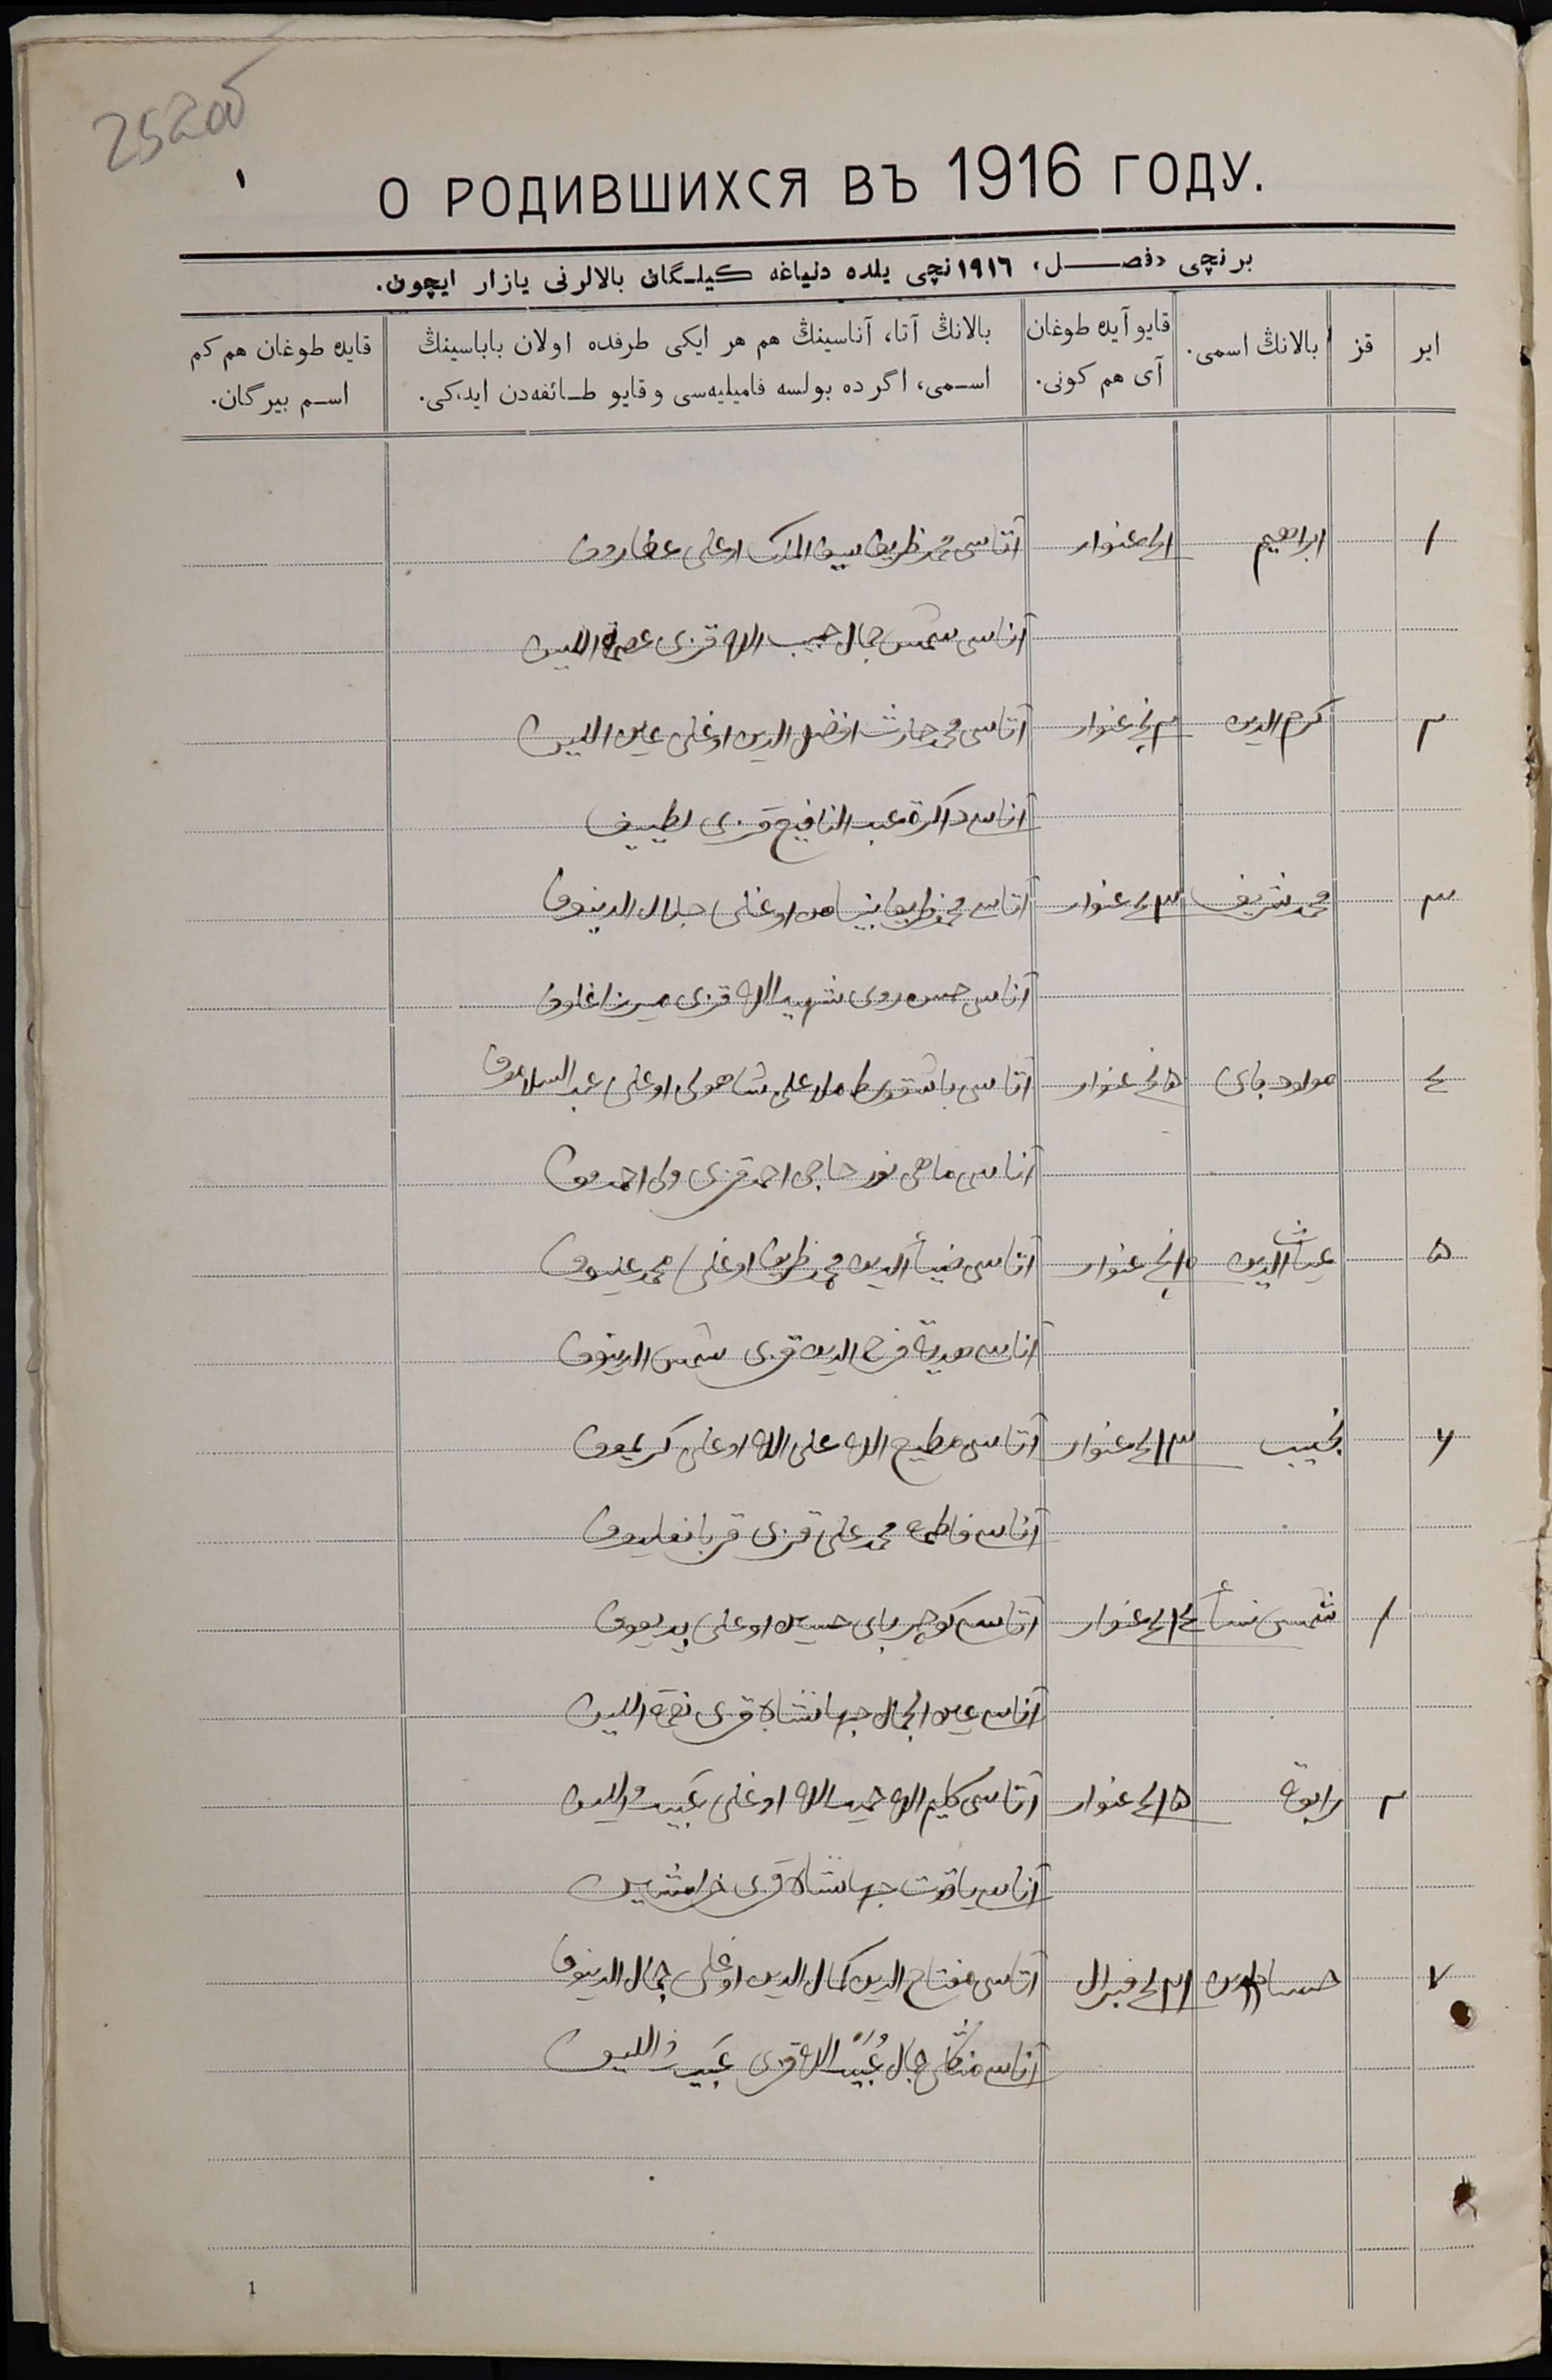 252об
١
О РОДИВШИХСЯ ВЪ 1916 ГОДУ.
برنچی «فصل» ١٩١٦نچی یلده دنیاغه کیلگان بالالرنی یازار ایچون.
ایر
قز
بالانڭ اسمی.
قایو آیده طوغان
آی هم کونی.
بالانڭ آتا، آناسینڭ هم هر ایکی طرفده اولان باباسینڭ
اسمی، اگر ده بولسه فامیلیه‌سی و قایو طائفه‌دن ایدکی.
قایده طوغان هم کم
اسم بیرگان.
١ ابراهیم غنوار آتاسی محمد ظریف سیف الملک اوغلی غفاروف
آناسی شمس جمال حبیب الله قزی عصمة اللین
٢ کرم الدین غنوار آتاسی محمد حارث افضل الدین اوغلی عین اللین
آناسی ذاکرة عبد النافیع قزی لطییف
٣ محمد شریف ٣ نچی غنوار آتاسی محمد ظریف اوغلی جلال الدینوف
آناسی حسن روی شهید الله قزی میرزاغلوف
٤ مولود بای ٥ نچی غنوار آتاسی باشقورط ملا علی شاهولی اوغلی عبد السلاموف
آناسی ماهی نور حاجی احمد قزی ولی احمدوف
٥ غیاث الدین نچی غنوار آتاسی ضیأ الدین محمد ظریف اوغلی محمد علیوف
آناسی هدیة فرح الدین قزی شمس الدینوف
٦ نجیب ١٣ نچی غنوار آتاسی مطیع الله علی الله اوغلی کریموف
آناسی فاطمه محمد علی قزی قربانعلیوف
١ شمس نسأ ١٤ نچی غنوار آتاسی کوچر بای حسین اوغلی بدیعوف
آناسی عین الجمال جهانشاه قزی نعمة اللین
٢ رابعة ١٥ نچی غنوار آتاسی کلیم الله حمید الله اوغلی عبید اللین
آناسی یاقوت جهانشاه قزی
٧ حسام الدین فبرال آتاسی مفتاح الدین کمال الدین اوغلی جمال الدینوف
آناسی جمال عبید الله قزی عبید اللین
1